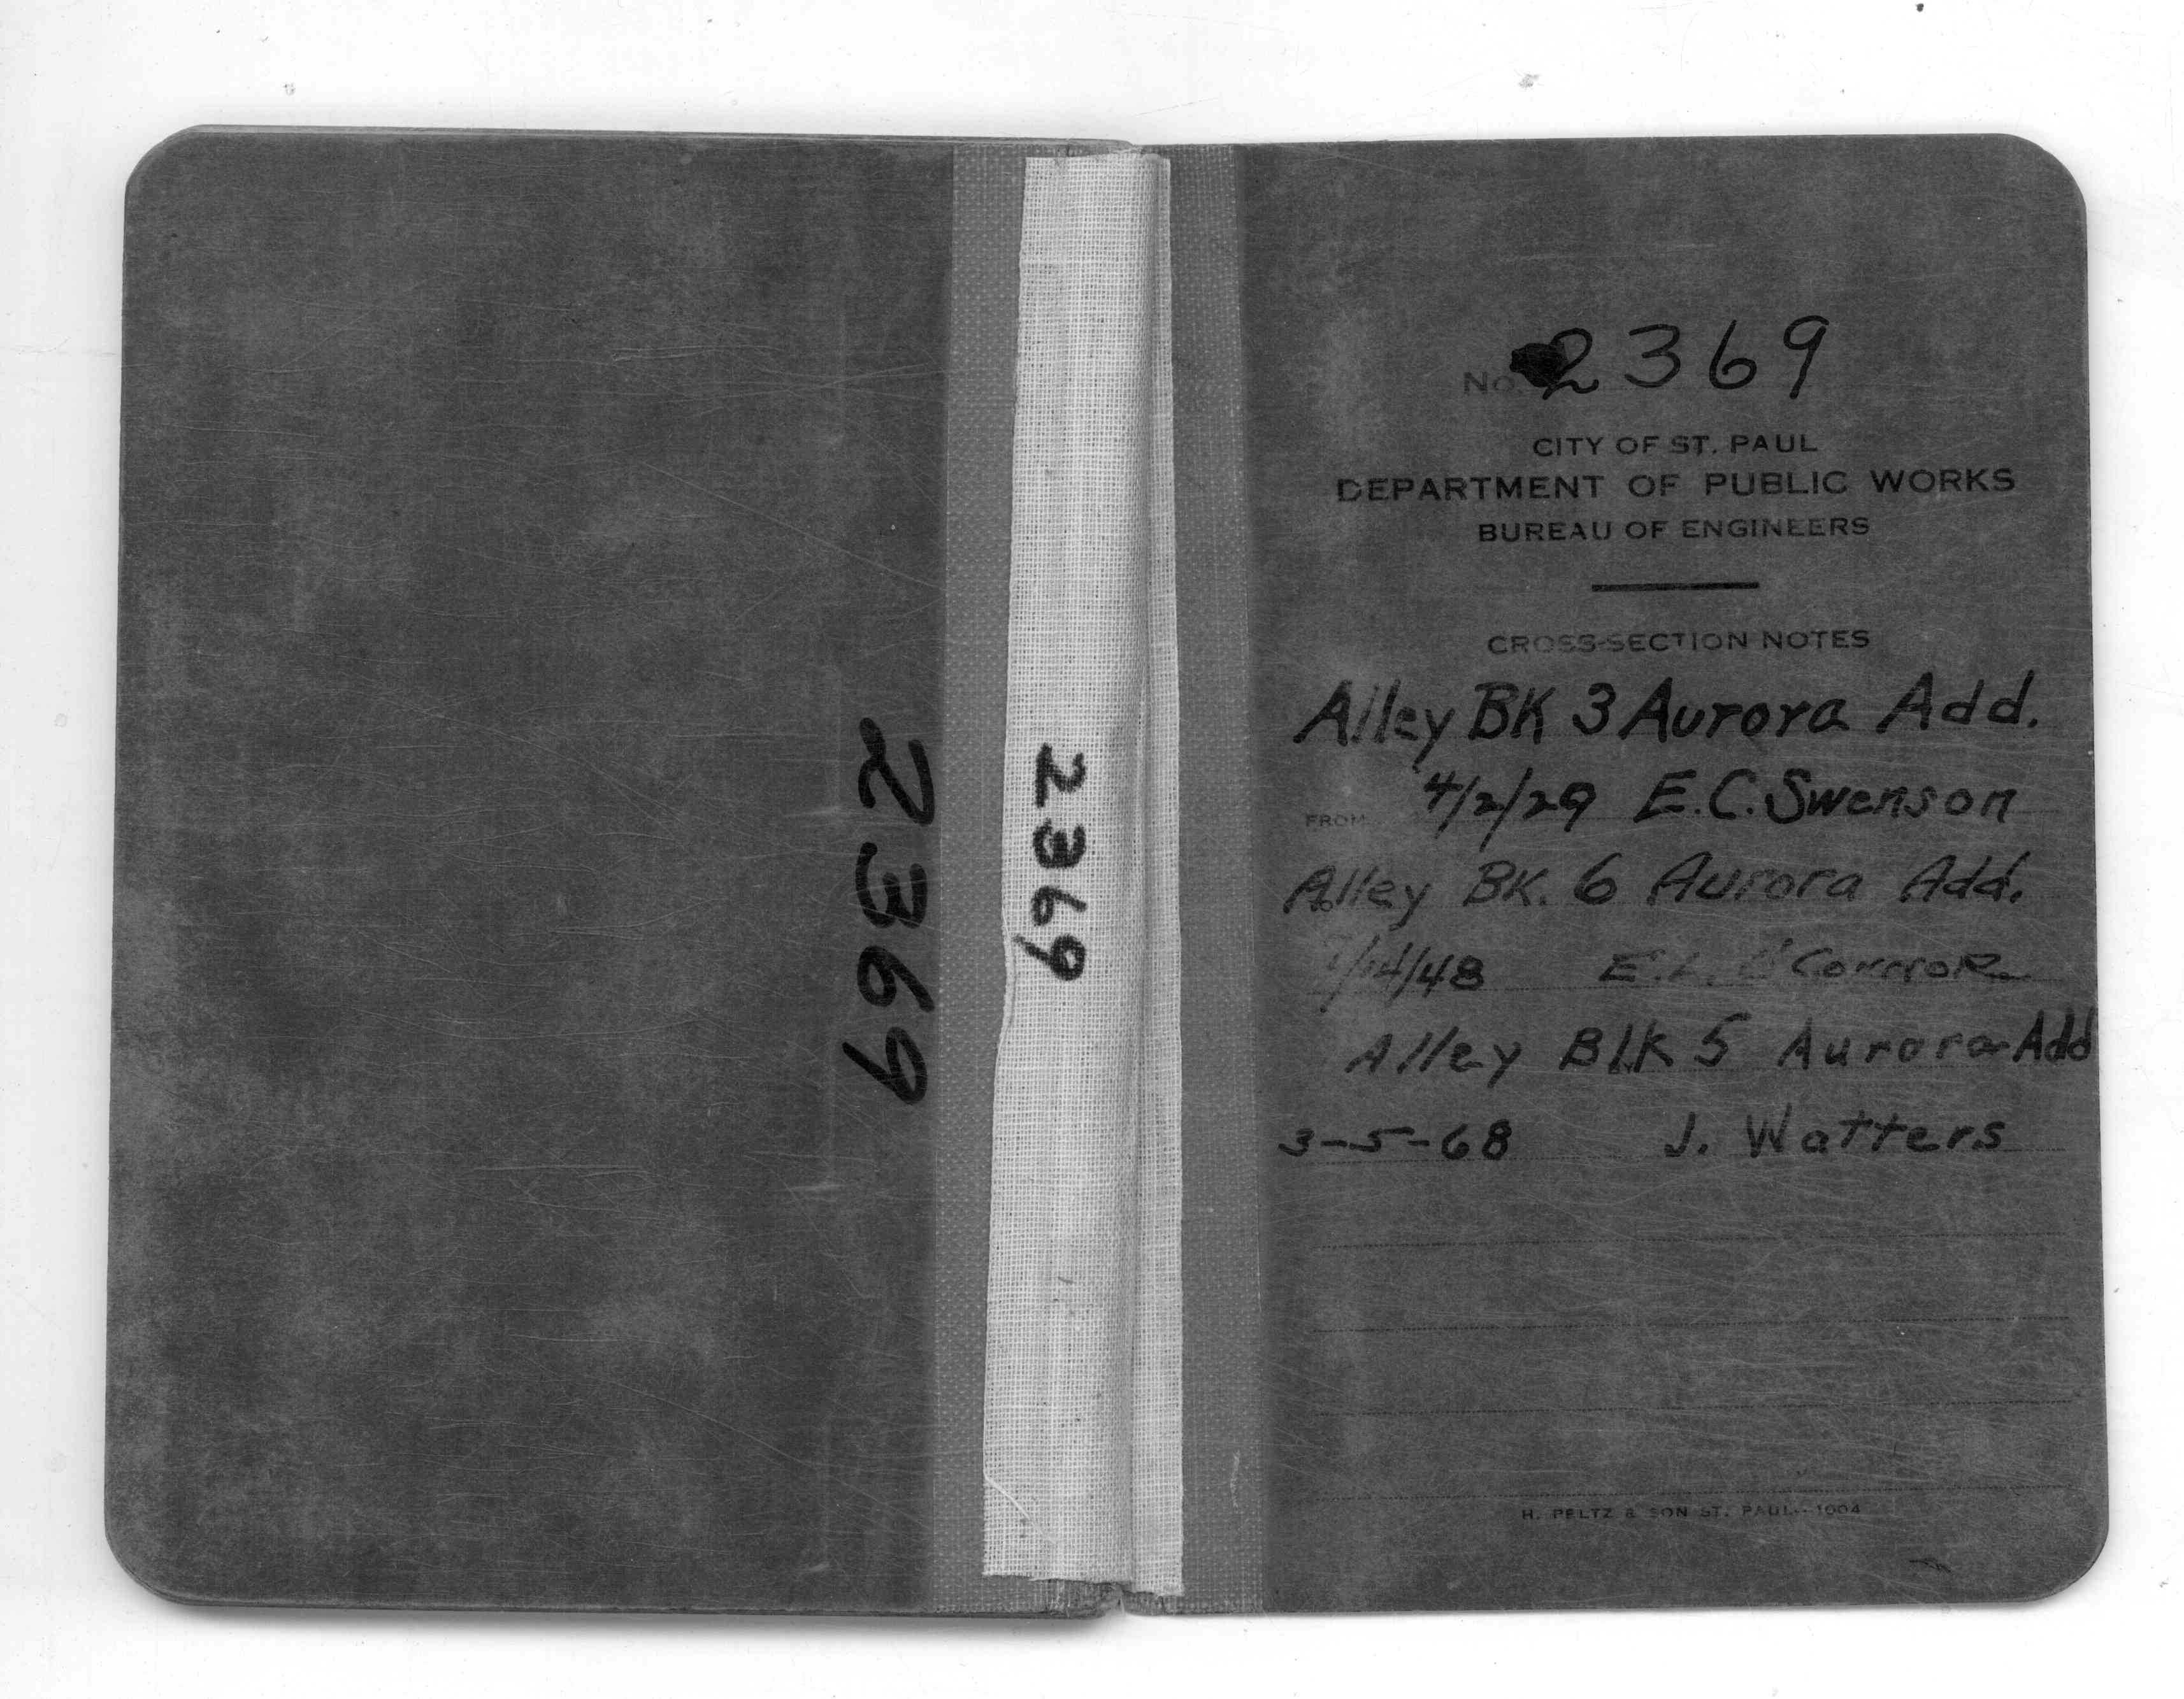 2369
2369
No. 2369
CITY OF ST. PAUL
DEPARTMENT OF PUBLIC WORKS
BUREAU OF ENGINEERS
CROSS-SECTION NOTES
Alley BK 3 Aurora Add.
FROM 4/2/29 E.C. Swenson
Alley BK. 6 Aurora Add.
/48 E.L. O'Connor
Alley Blk 5 Aurora Add
3-5-68 J. Watters
H. PELTZ & SON ST. PAUL--1004